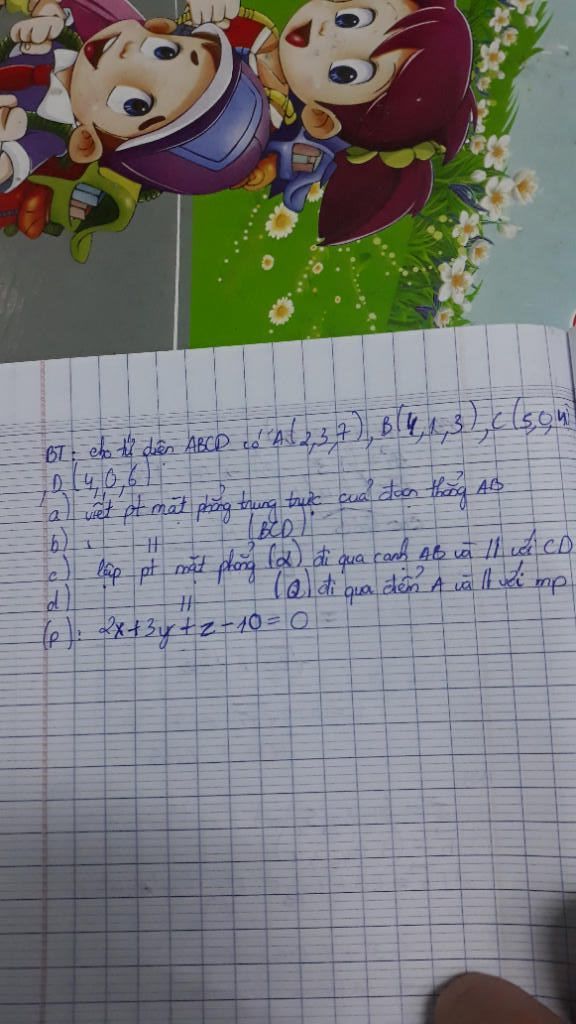 BT: cho tứ diện ABCD có A(2,3,7), B(4,1,3), C(5,0,4)
, D(4,0,6)
a) viết pt mặt phẳng trung trực của đoạn thẳng AB
b) " (BCD)
c) lập pt mặt phẳng (α) đi qua cạnh AB và // với CD
d) " (Q) đi qua điểm A và // với mp
(p): 2x+3y+z-10=0